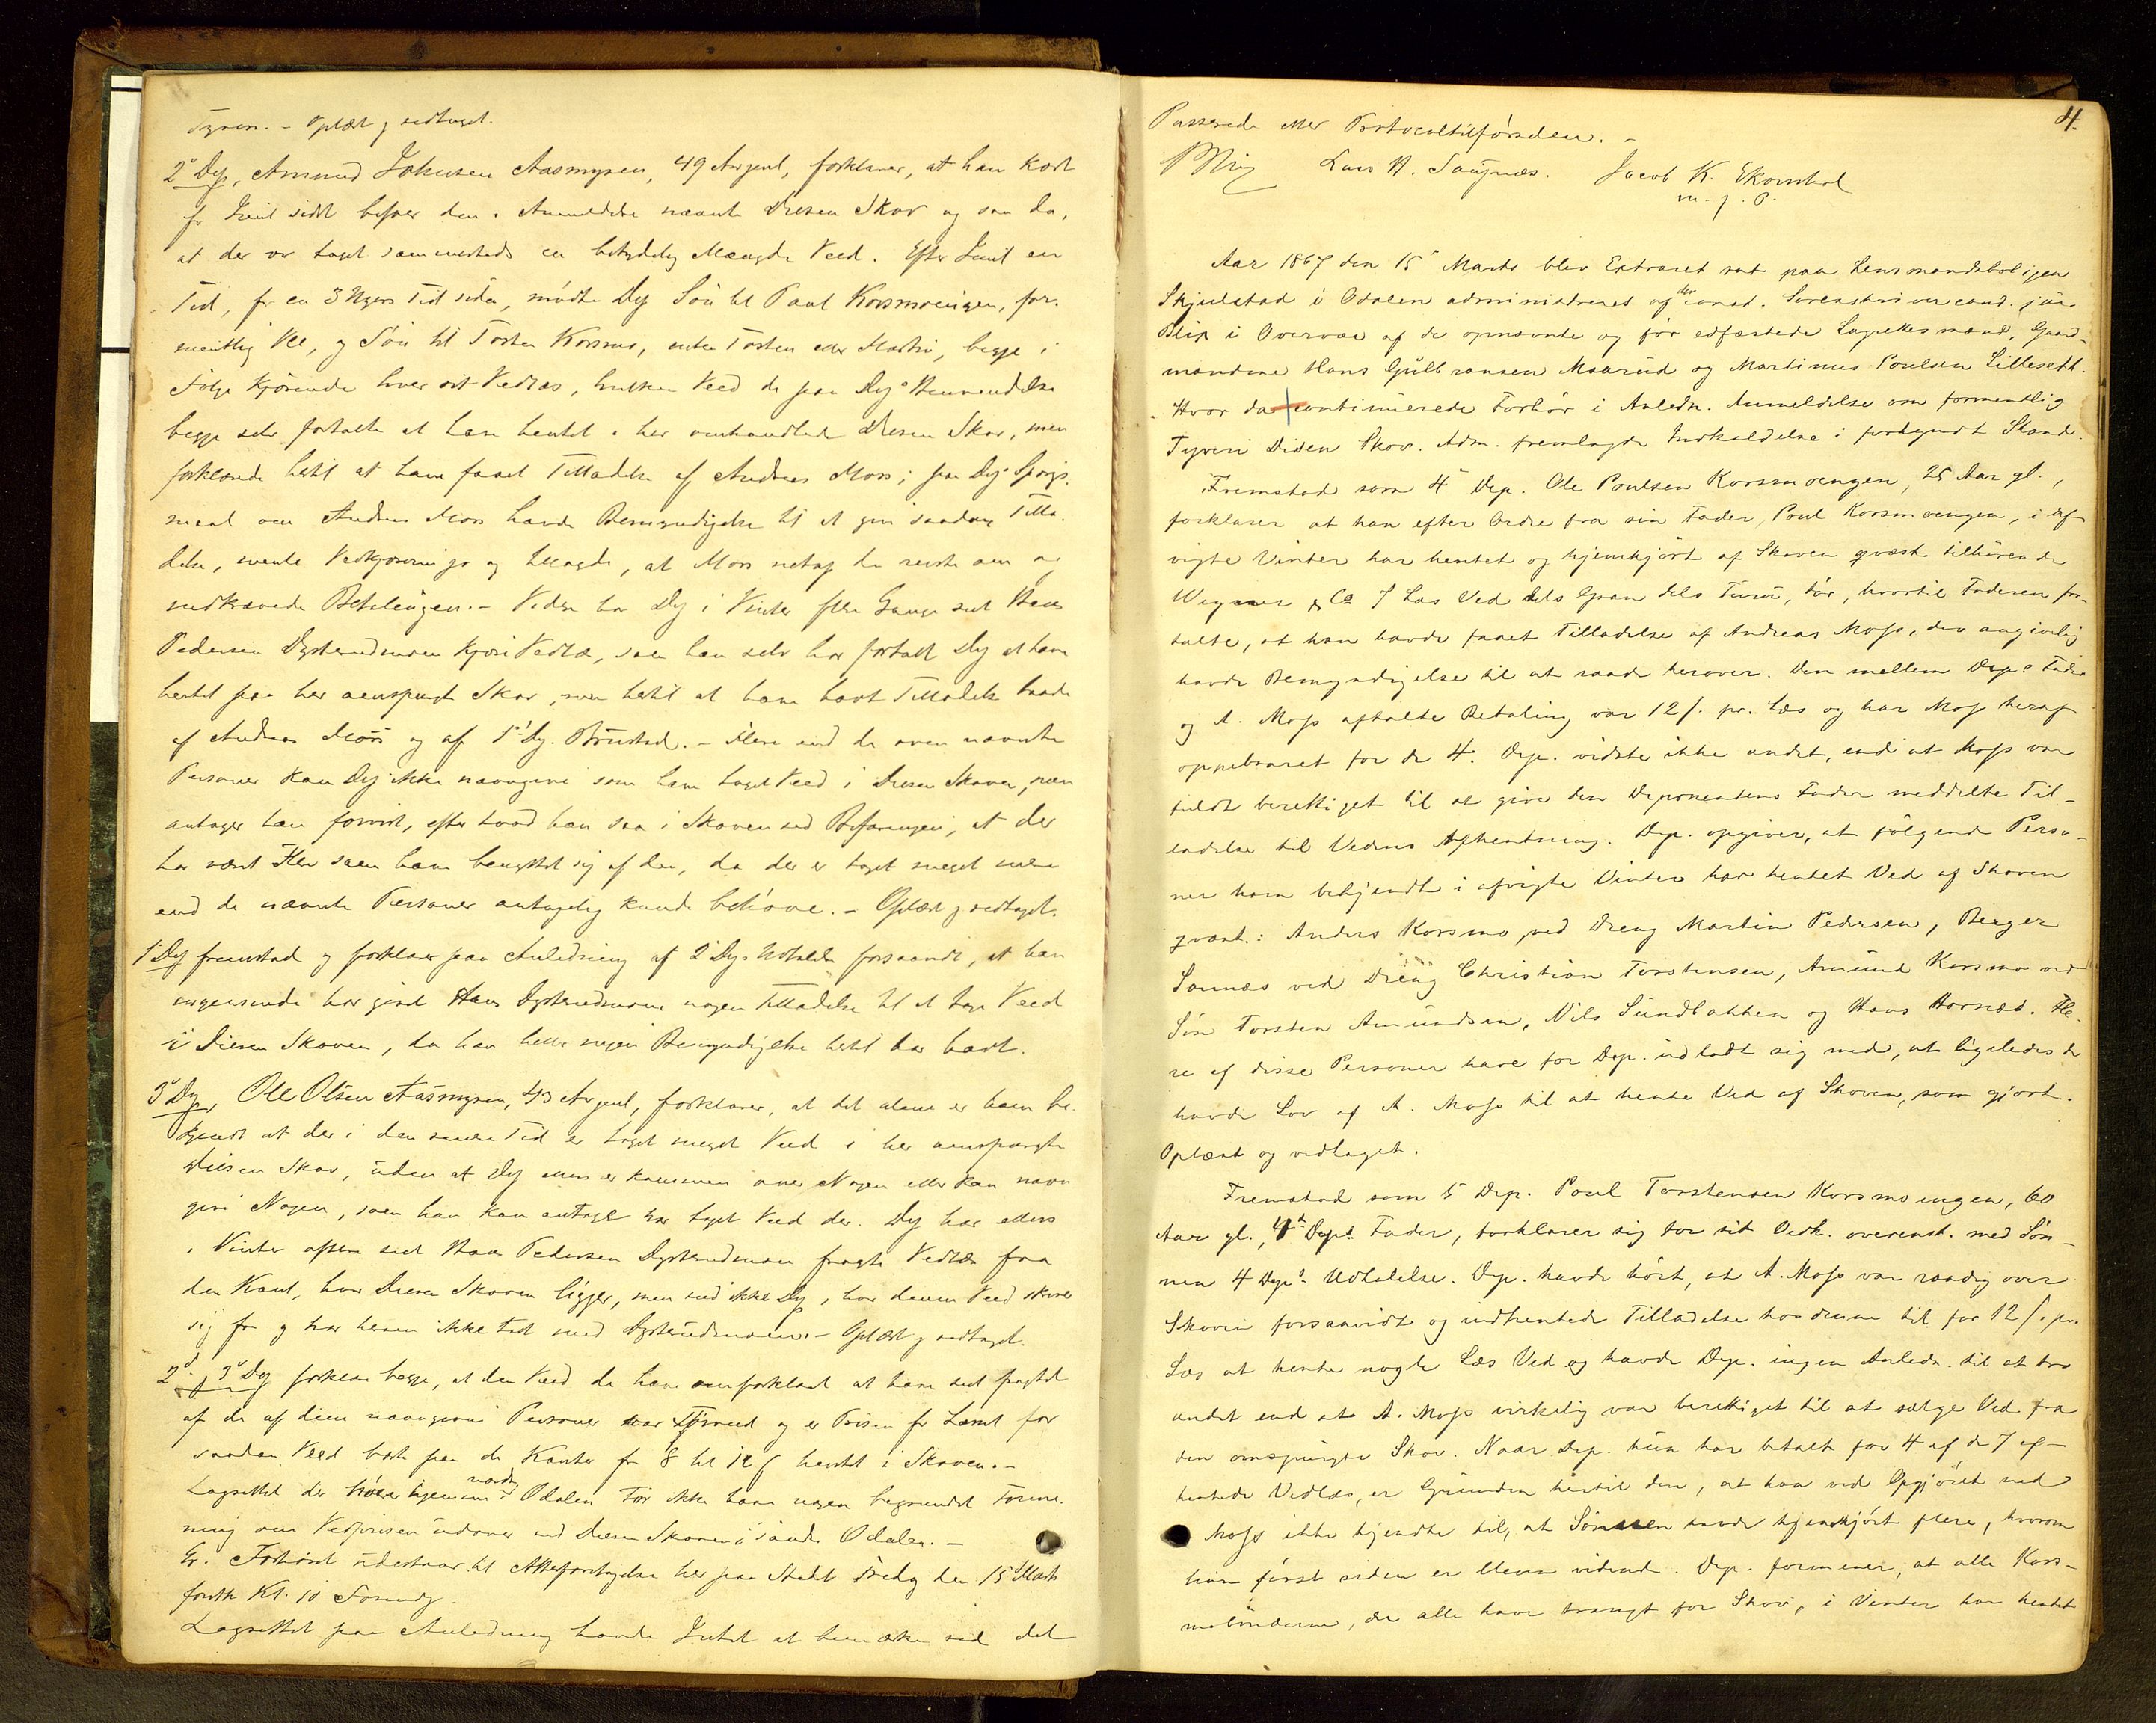 Tyveri. - Oplæst og vedtaget.
2' Dep, Amund Johnsen Aasmyren, 49 Aar gml, forklarer, at han kort
før Juul sidst befoer den i Anmeldelse nævnte Diesen Skov og saa da,
at der var taget sammesteds en betydelig Mængde Veed. Efter Juul en
Tid, for ca 3 Ugers Tid siden, mødte Dep Søn til Paul Korsmoeingen, for-
mentlig Ole, og Søn til Torsten Korsmo, enten Torsten eller Martin, begge i
Følge kjørende hver sit Vedlæs, hvilken Veed de paa Dep's Henvendelse
begge selv fortalte at have hentet i her omhandlede Diesen Skov, men
forklarede hertil at have faaet Tilladelse af Andreas Moss; paa Dep's Spørgs-
maal om Andreas Moss havde Bemyndigelse til at give saadan Tilla-
delse, mente Vedkommende jo og tillagde, at Moss netop da reiste om og
indkrævede Betalingen. - Videre har Dep i Vinter flere Gange seet Hans
Pedersen Dysterudmoen kjøre Vedlæs, som han selv har fortalt Dep at have
hentet paa her omspurgte Skov, men hertil at have havt Tilladelse baade
af Andreas Moss og af 1' Dep. Brustad. - Flere end de oven nævnte
Personer kan Dep ikke navngive som have taget Veed i Diesen Skoven, men
antager han forvist, efter hvad han saa i Skoven ved Befaringen, at der
har været Flere som have benyttet sig af den, da der er taget meget mere
end de nævnte Personer antagelig kunde behøve. - Oplæst og vedtaget.
1' Dep fremstod og forklarer paa Anledning af 2' Dep's Udtalelse forsaavidt, at han
ingensinde har givet Hans Dysterudmoen nogen Tilladelse til at tage Veed
i Diesen Skoven, da han heller ingen Bemyndigelse hertil har havt.
3' Dep, Ole Olsen Aasmyren, 43 Aar gml, forklarer, at det alene er ham be-
kjendt at der i den senere Tid er taget meget Veed i her omspurgte
Diesen Skov, uden at Dep ellers er kommen over Nogen eller kan navn
give Nogen, som han kan antage har taget Veed der. Dep har ellers
i Vinter oftere seet Hans Pedersen Dysterudmoen fragte Vedlæs fra
den Kant, hvor Diesen Skoven ligger, men ved ikke Dep, hvor denne Veed skrev
sig fra og har herom ikke talt med Dysterudmoen. - Oplæst og vedtaget.
2' og 3' Dep forklare begge, at den Veed de have omforklaret at have seet fragtet
af de af dem navngivne Personer var Tørveed og er Prisen for Læsset for
saadan Veed der paa de Kanter fra 8 til 12 s hentet i Skoven. -
Lagrettet der hører hjemme i nordre Odalen tør ikke have nogen begrundet Forme-
ning om Vedprisen udover ved Diesen Skoven i søndre Odalen. -
Er. Forhøret udestaar til Atterforetagelse her paa Stedet Fredag den 15 Marts
førstk Kl. 10 Formidg.
Lagrettet paa Anledning havde Intet at bemærke ved det
4.
Passerede eller Protocoltilførselen. -
Blix Lars A. Saugnæs. Jacob K. Ekornhol
m. f. P.
Aar 1867 den 15' Marts blev Extraret sat paa Lensmandsboligen
Skjulstad i Odalen administreret af den const. Sorenskriver cand. jur.
Blix i Overvær af de opnævnte og før edfæstede Lagrettesmænd, Gaard-
mændene Hans Gulbransen Maarud og Martinus Poulsen Lillesæth.
Hvor da continuerede Forhør i Anledn. Anmeldelse om formentlig
Tyveri Disen Skov. Adm. fremlagde Indkaldelse i forkyndt Stand.
Fremstod som 4' Dep. Ole Poulsen Korsmoengen, 25 Aar gl.,
forklarer at han efter Ordre fra sin Fader, Poul Korsmoengen, i af-
vigte Vinter har hentet og hjemkjørt af Skoven qvæst. tilhørende
Wegner ca 7 Læs Ved dels Gran dels Furu, tør, hvortil Faderen for-
talte, at han havde faaet Tilladelse af Andreas Moss, der angivelig
havde Bemyndigelse til at raade herover. Den mellem Deps Fader
og A. Moss aftalte Betaling var 12 s. pr. Læs og har Moss heraf
oppebaaret for de 4. Dep. vidste ikke andet, end at Moss var
fuldt berettiget til at give den Deponentens Fader meddelte Til-
ladelse til Vedens Afhentning. Dep. opgiver, at følgende Perso-
ner ham bekjendt i afvigte Vinter har hentet Ved af Skoven
qvæst.: Anders Korsmo ved Dreng Martin Pedersen, Berger
Sannæs ved Dreng Christian Torstensen, Amund Korsmo ved
Søn Torsten Amundsen, Nils Sundbakken og Hans Hornæs. Fle-
re af disse Personer have for Dep. indladt sig med, at ligeledes de
havde Lov af A. Moss til at hente Ved af Skoven, som gjort.
Oplæst og vedtaget.
Fremstod som 5 Dep. Poul Torstensen Korsmoengen, 60
Aar gl., 4de Deps. Fader, forklarer sig for sit Vedk. overenst. med Søn-
nen 4 Deps Udtalelse. Dep. havde hørt, at A. Moss var raadig over
Skoven forsaavidt og indhentede Tilladelse hos denne til for 12 s. pr.
Læs at hente nogle Læs Ved og havde Dep. ingen Anledn. til at tro
andet end at A. Moss virkelig var berettiget til at sælge Ved fra
den omspurgte Skov. Naar Dep. kun har betalt for 4 af de 7 af-
hentede Vedlæs, er Grunden hertil den, at han ved Opgjøret med
Moss ikke kjendte til, at Sønnen havde hjemkjørt flere, hvorom
han først siden er bleven vidende. Dep. formener, at alle Kors-
mobønderne, der alle have trangt for Skov, i Vinter har hentet